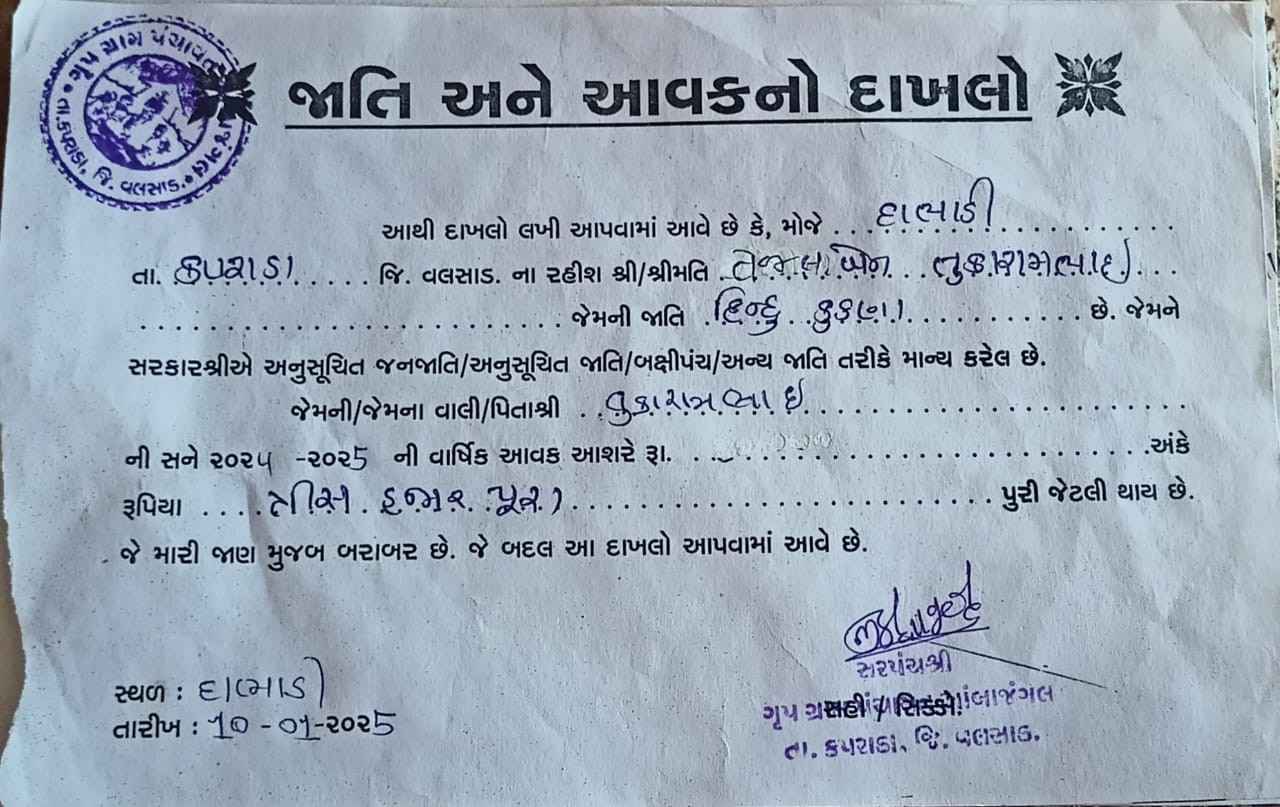 ગૃપ ગ્રામ પંચાયત
તા. કપરાડા, જિ. વલસાડ.
જાતિ અને આવકનો દાખલો
આથી દાખલો લખી આપવામાં આવે છે કે, મોજે દાભાડી
તા. કપરાડા જિ. વલસાડ. ના રહીશ શ્રી/શ્રીમતિ તેજલબેન તુકારામભાઇ
જેમની જાતિ હિન્દુ કુકણા છે. જેમને
સરકારશ્રીએ અનુસૂચિત જનજાતિ/અનુસૂચિત જાતિ/બક્ષીપંચ/અન્ય જાતિ તરીકે માન્ય કરેલ છે.
જેમની/જેમના વાલી/પિતાશ્રી તુકારામભાઇ
ની સને ૨૦૨૫ -૨૦૨5 ની વાર્ષિક આવક આશરે રૂા. અંકે
રૂપિયા તીસ હજાર પૂરા પુરી જેટલી થાય છે.
જે મારી જાણ મુજબ બરાબર છે. જે બદલ આ દાખલો આપવામાં આવે છે.
સરપંચશ્રી
સ્થળ : દાભાડી
ગૃપ સહી / સિક્કો
તારીખ : 10-01-૨૦૨5
તા. કપરાડા, જિ. વલસાડ.